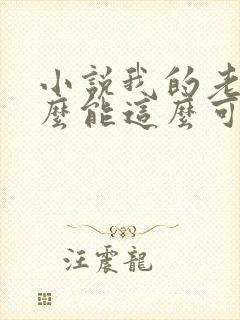 小說我的老
麼能這麼可
汪震龍